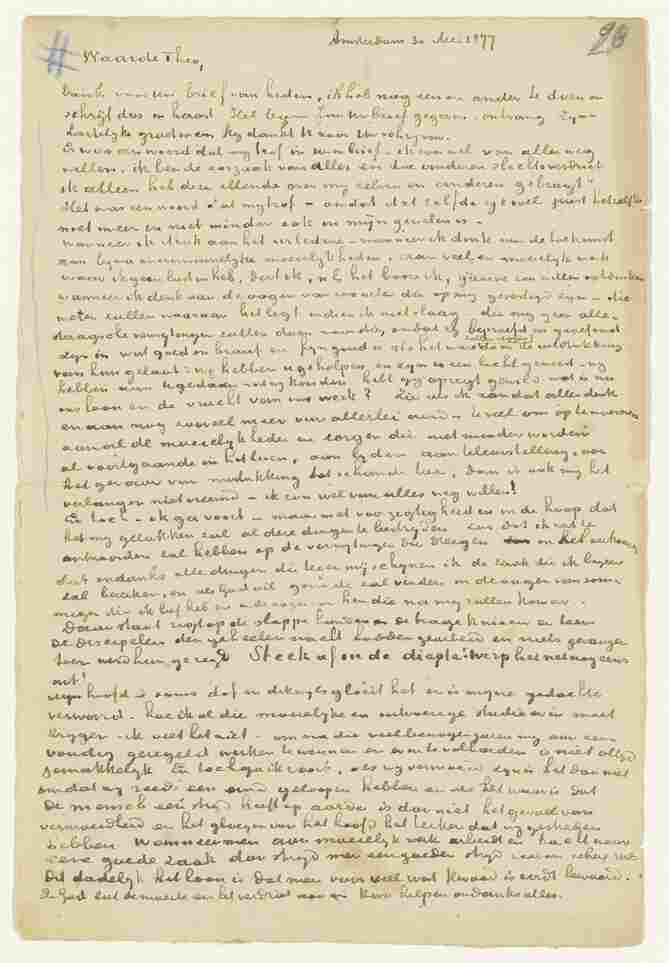 98
Amsterdam 30 Mei 1877
Waarde Theo,
Dank voor uw brief van heden, ik heb nog een en ander te doen en
schrijf dus in haast Het Uwen brief gegeven, ontvang zyn
hartelyke groeten en hy dankt U voor Uw schryven.
Er was een woord dat my trof in uwen brief, ik zou wel van alles weg
willen, ik ben de oorzaak van alles en doe anderen slechts verdriet
ik alleen heb deze ellende over my zelven en anderen gebragt"
Het was een woord dat my trof - omdat dat zelfde gevoel juist hetzelfde
niet meer en niet minder ook in mijn geweten is -
Wanneer ik denk aan het verledene - wanneer ik denk aan de toekomst
aan byna onoverkomelyke moeielykheden, aan veel en moeielyk werk
waar ik geen lust in heb, dat ik, nl. het booze ik, gaarne zou willen ontduiken
wanneer ik denk aan de oogen van zoovelen die op my gevestigd zyn - die
weten zullen waaraan het ligt indien ik niet slaag, die my geen alle-
daagsche verwytingen zullen doen maar die, omdat zy beproefd en geoefend
zyn in wat goed en braaf en fyn goud is als het ware door de uitdrukking
van hun gelaat: wy hebben u geholpen en zyn u een licht geweest - wy
hebben voor u gedaan wat wy konden hebt gy opregt gewild wat is nu
ons loon en de vrucht van ons werk? Zie als ik aan dat alles denk
en aan nog zooveel meer van allerlei aard - te veel om op te noemen
aan al de moeielykheden en zorgen die niet minder worden
al voortgaande in het leven, aan lyden aan teleurstelling, aan
het gevaar van mislukking tot schande toe, dan is ook my het
verlangen niet vreemd - ik zou wel van alles weg willen!
En toch - ik ga voort - maar met voorzigtigheid en in de hoop dat
het my gelukken zal al deze dingen te bestryden zoo dat ik raad te
antwoorden zal hebben op de verwytingen die dreigen en in het vertrouwen
dat ondanks alle dingen die tegen my schynen ik de zaak die ik begeer
zal bereiken, en als God wil genade zal vinden in de oogen van som-
migen die ik lief heb en in de oogen van hen die na my zullen komen.
Daar staat rigt op de slappe handen en de trage knieen en toen
de discipelen den geheelen nacht hadden gearbeid en niets gevangen
toen werd hun gezegd Steek af in de diepte! werp het net nog eens
uit!
Myn hoofd is soms dof en dikwyls gloeit het en is myne gedachte
verward - hoe ik al die moeielyke en omvoerige studie er in moet
krygen - ik weet het niet - om na die veelbewogen jaren my aan een-
voudig geregeld werken te wennen en er in te volharden is niet altyd
gemakkelyk. En toch ga ik voort, als wy vermoeid zyn is het dan niet
omdat wy reeds een eind geloopen hebben en als het waar is dat
de mensch een stryd heeft op aarde is dan niet het gevoel van
vermoeidheid en het gloeijen van het hoofd het teeken dat wy gestreden
hebben Wanneer men aan moeielyk werk arbeidt en tracht naar
eene goede zaak dan strydt men een goeden stryd waarvan zeker reeds
dit dadelyk het loon is dat men voor veel wat kwaad is wordt bewaard.
En God ziet de moeite en het verdriet aan en Kan helpen ondanks alles.